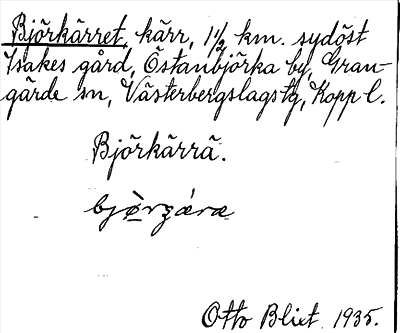 Björkärret, kärr, 1½ km. sydöst
Isakes gård, Östanbjörka by, Gran-
gärde sn, Västerbergslags tg, Kopp l.
Björkärrä.
Otto Blixt 1935.